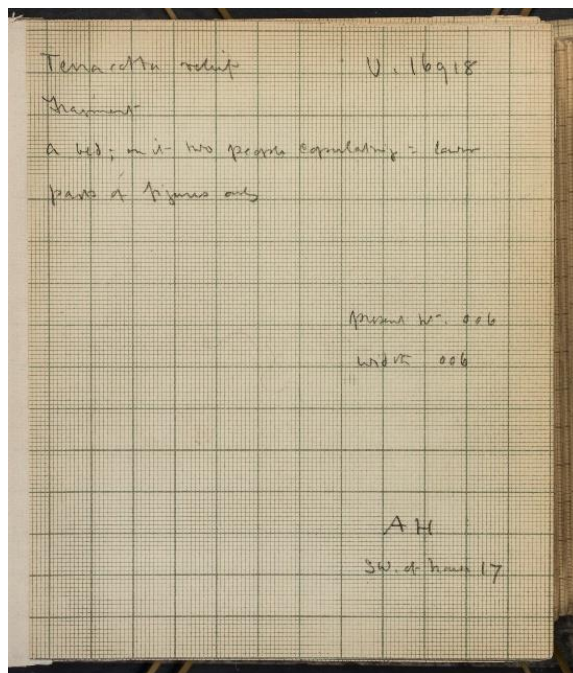 Terracotta relief U. 16918
fragment
a bed; on it two people copulating = lower
parts of figures only
present ht. 006
width 006
AH
SW. of house 17